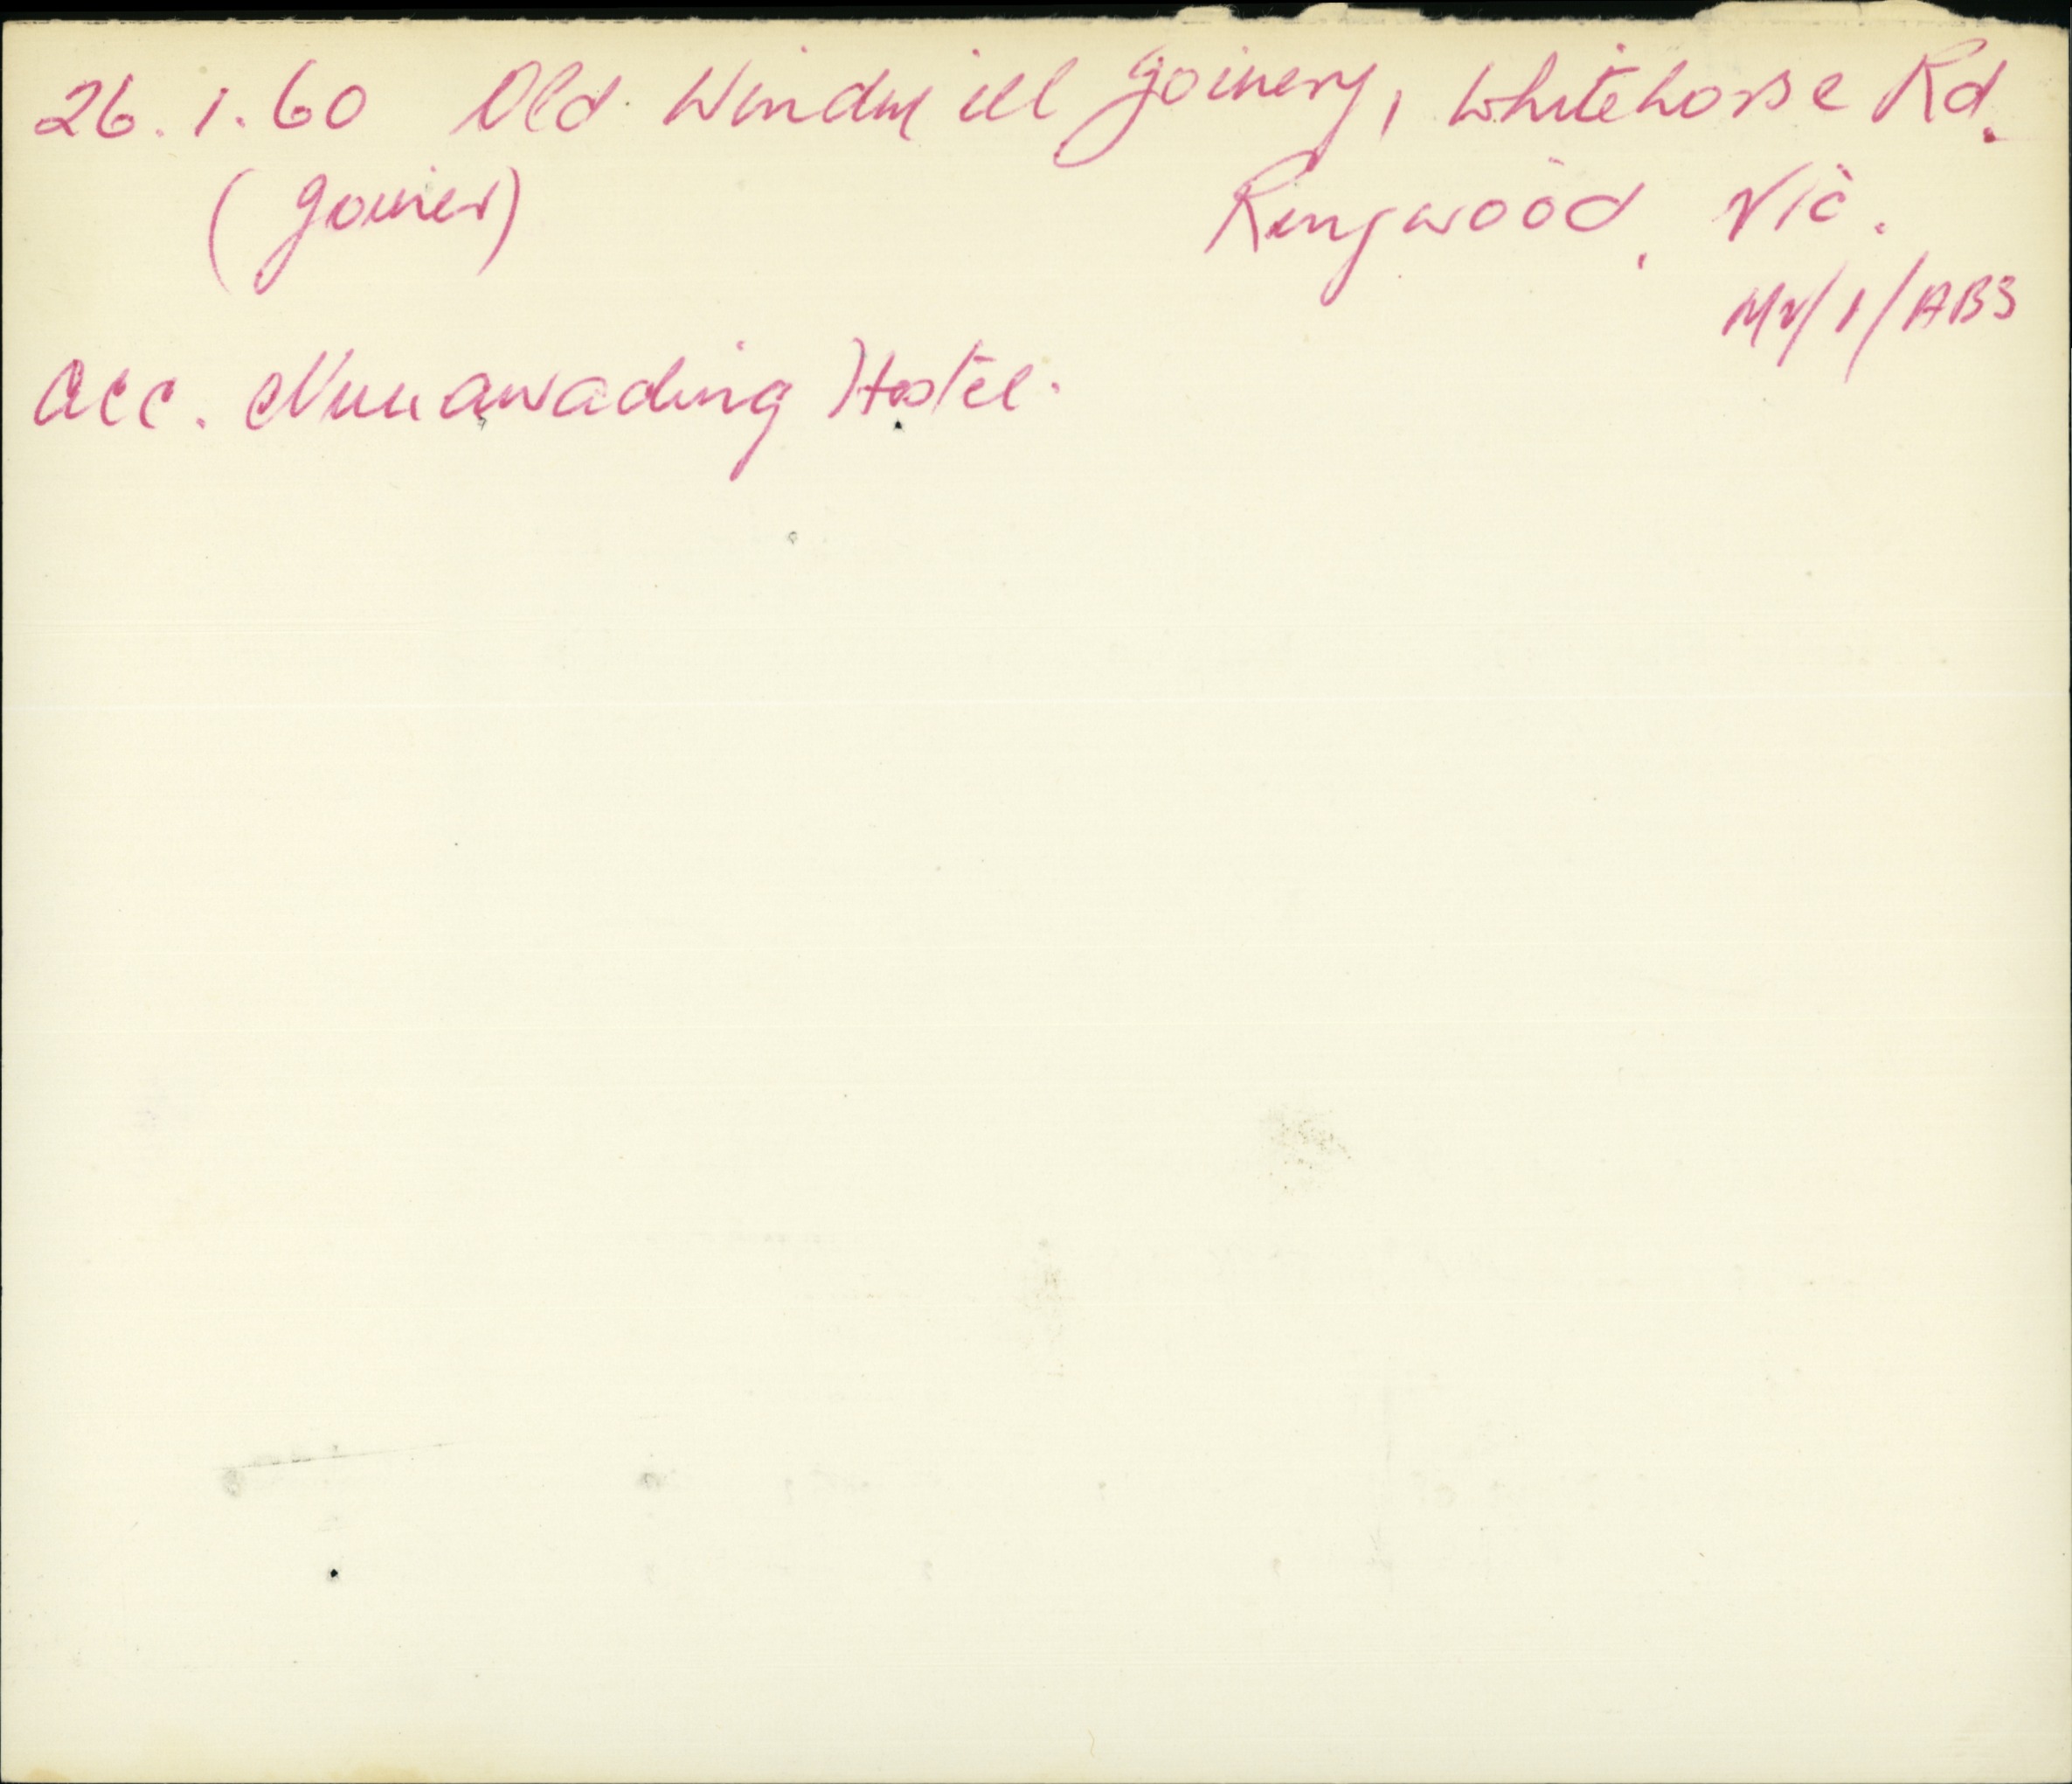 26.1.60 Old Windmill Joinery, Whitehorse Rd.
(Joiner) Ringwood, Vic.
MV/1/ABS
Acc. Nunawading Hostel.